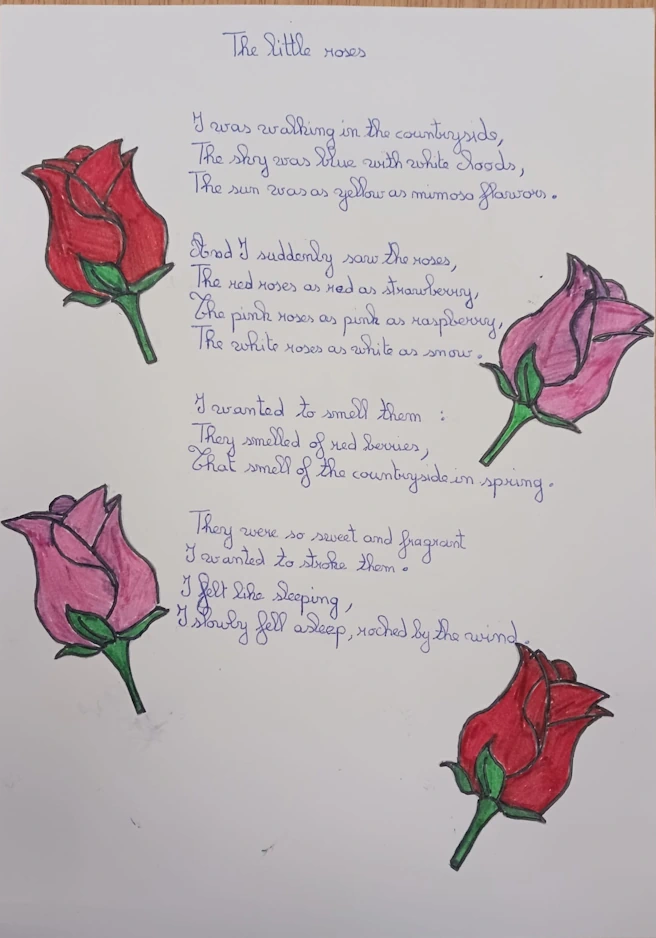 The little roses
I was walking in the countryside,
The sky was blue with white cloods,
The sun was as yellow as mimosa flawors.
And I suddenly saw the roses,
The red roses as red as strawberry,
The pink roses as pink as raspberry,
The white roses as white as snow.
I wanted to smell them :
They smelled of red berries,
That smell of the countryside in spring.
They were so sweet and fragrant
I wanted to stroke them.
I felt like sleeping,
I slowly fell asleep, rocked by the wind.